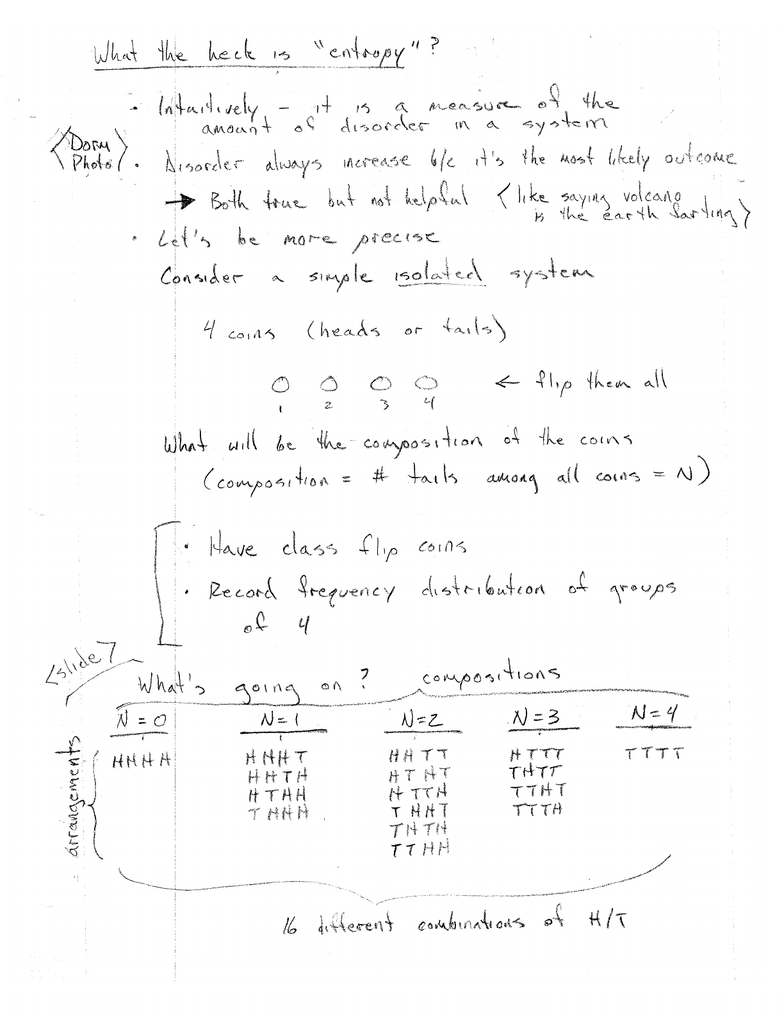 What the heck is "entropy"?
• Intuitively - it is a measure of the
amount of disorder in a system
<Dorm
Photo>
• Disorder always increase b/c it's the most likely outcome
→ Both true but not helpful <like saying volcano
is the earth farting>
• Let's be more precise
Consider a simple isolated system
4 coins (heads or tails)
← flip them all
1 2 3 4
What will be the composition of the coins
(composition = # tails among all coins = N)
• Have class flip coins
• Record frequency distribution of groups
of 4
<slide>
What's going on? compositions
N=0 N=1 N=2 N=3 N=4
arrangements
HHHH HHHT HHTT HTTT TTTT
HHTH HTHT THTT
HTHH HTTH TTHT
THHH THHT TTTH
THTH
TTHH
16 different combinations of H/T